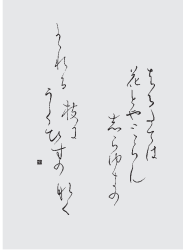 はるたては
花とやみらん
志らゆきの
かゝれる枝に
うくひすのなく